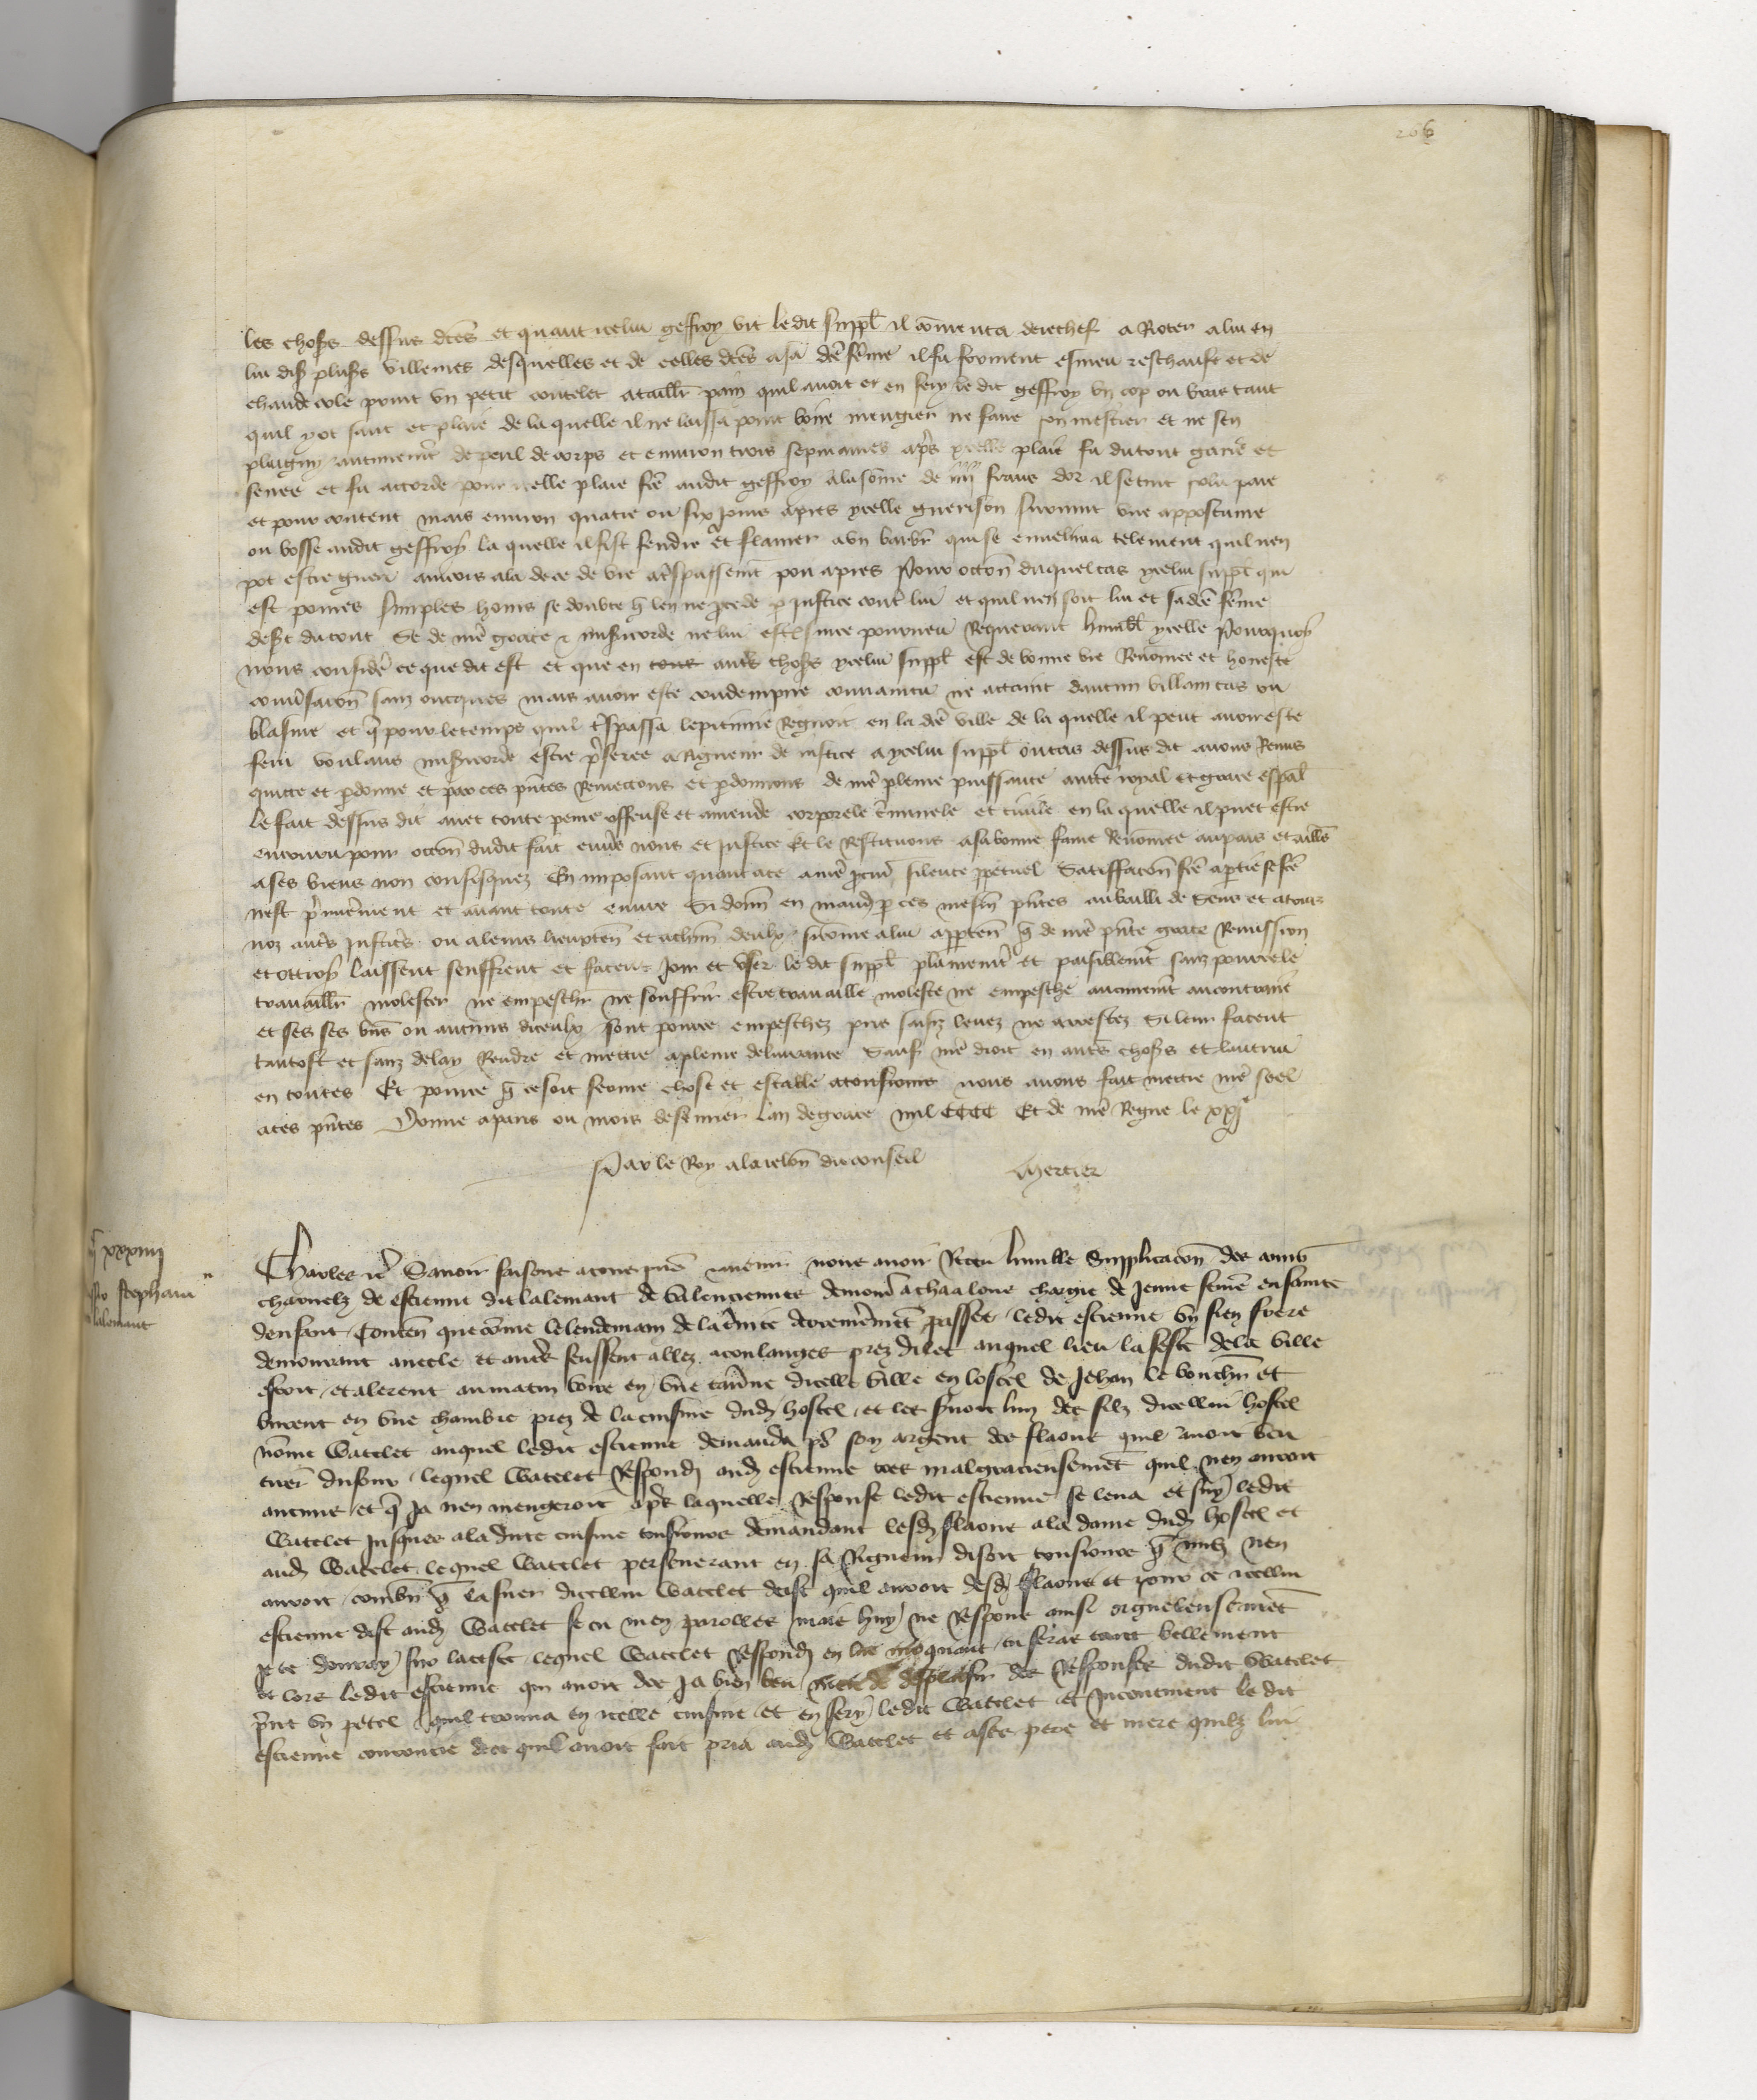 266
les choses dessus dces et quant icelui geffroy vit ledit suppl il comenca derechef a Roter a lui en
lui dis pluss villenies desquelles et de celles dces a sa dce feme il fu forment esmeu reschaufe et de
chaude cole print un petit coutelet a taillr pain quil avoit et en fery le dit geffroy un cop ou bras tant
quil y ot sanc et plaie de la quelle il ne laissa point boire mengier ne faire son mestier et ne sen
plaigny aucunemt de peril de corps et environ trois sepmaines aprs ycelle plaie fu du tout garie et
senee et fu accorde pour icelle plaie fce audit geffroy a la some de iiii frans dor il se tint pour paie
et pour content mais environ quatre ou six jours apres ycelle guerison survint une appostume
ou bosse audit geffroy la quelle il fist fendre et flamer a un barbr qui se envelima telement quil nen
pot estre gueri aincois ala de ce de vie a trespassemt pou apres Pour occon duquel cas ycelui suppl qui
est poures simples homs se doubte q len ne procede p justice contr lui et quil nen soit lui et sa dce feme
desert du tout Se de nre grace & misericorde ne lui est sur ce pourveu Requerant humblt ycelle Pourquoy
nous considere ce que dit est et que en tous autrs choses ycelui suppl est de bonne vie Renomee et honeste
conversacon sanz oncques mais avoir este condempne convaincu ne attaint daucun villain cas ou
blasme et q pour le temps quil trespassa lepitimie Regnoit en la dce ville de la quelle il peut avoir este
feru voulans misericorde estre preferee a Rigueur de justice a ycelui suppl ou cas dessus dit avons Remis
quicte et pdonne et par ces pntes Remectons et pdonnons de nre pleine puissance aucte royal et grace espal
le fait dessus dit avec toute peine offense et amende corporele criminele et civile en la quelle il puet estre
encouru pour occon dudit fait envrs nous et justice Et le Restituons a sa bonne fame Renomee au pais et aillrs
a ses biens non confisquez En imposant quant a ce a nre procur silence ppetuel Satiffacon fce a ptie se fce
nest premieremt et avant toute euvre Si donn en mand p ces mesm pntes au bailli de Sens et a tous
noz autrs justicrs ou a leurs lieuxten et a chun deulx si come a lui appten q de nre pnte grace Remission
et ottroy laissent seuffrent et facent joir et user le dit suppl plainemt et paisiblemt sanz pour ce le
travaillr molester ne empeschr ne souffrir estre travaille moleste ne empesche aucunemt au contraire
et ses ses bns ou aucuns diceulx sont pour ce empeschez prs saisiz levez ne arrestez Si leur facent
tantost et sanz delay Rendre et mectre a pleine delivrance Sauf nre droit en autrs choses et lautrui
en toutes Et pour ce q ce soit ferme chose et estable a tousiours nous avons fait mectre nre seel
a ces pntes Donne a paris ou mois de fevrier lan de grace mil CCCC Et de nre Regne le xxje
Par le Roy a la relon du conseil Mercier
xxxiiij
Stephani
lalemant
Charles &c Savoir faisons a tous pns avenir nous avoir Receu humble Supplicacon des amis
charnelz de estienne dit lalemant de valenciennes demour a chaalons chargie de jeune feme ensainte
denfant Conten que come le lendemain de la trinite derremt passee ledit estienne un sien frere
demourant avecle et autrs feussent allez a coulanges prez dilec auquel lieu la feste de lae ville
estoit et alerent au matin boire en une taverne dicelle ville en lostel de Jehan le bouchr et
burent en une chambre prez de la cuisine dud hostel et lors survint lun des filz dicellui hostel
nome Watelet auquel ledit estienne demanda por son argent des flaons quil avoit veu
tuer dusour lequel Watelet Respondi aud estienne tres malgracieusement quil nen auroit
aucune et q ja nen mengeroit aprs laquelle Response ledit estienne se leva et suy ledit
Watelet jusques a la dicte cuisine tousiours demandant lesd flaons a la dame dud hostel et
aud Watelet lequel Watelet perseverant en sa Rigueur disoit tousiours q nulz nen
auroit combn q la suer dicellui Watelet deist quil auroit desd flaons et pour ce icellui
estienne dist aud Watelet se tu men parolles mais huy ne Respons ainsi orgueleusemet
je te donray sur la teste lequel Watelet Respondi en soy moquant tu feras tout bellement
et lors ledit estienne qui avoit des ja bien beu desplaisir des Responses dudit Watelet
print un petel quil trouva en icelle cuisine et en fery ledit Watelet et incontinent le dit
estienne couroucie de ce quil avoit fait pria aud Watelet et a ses pere et mere quilz lui